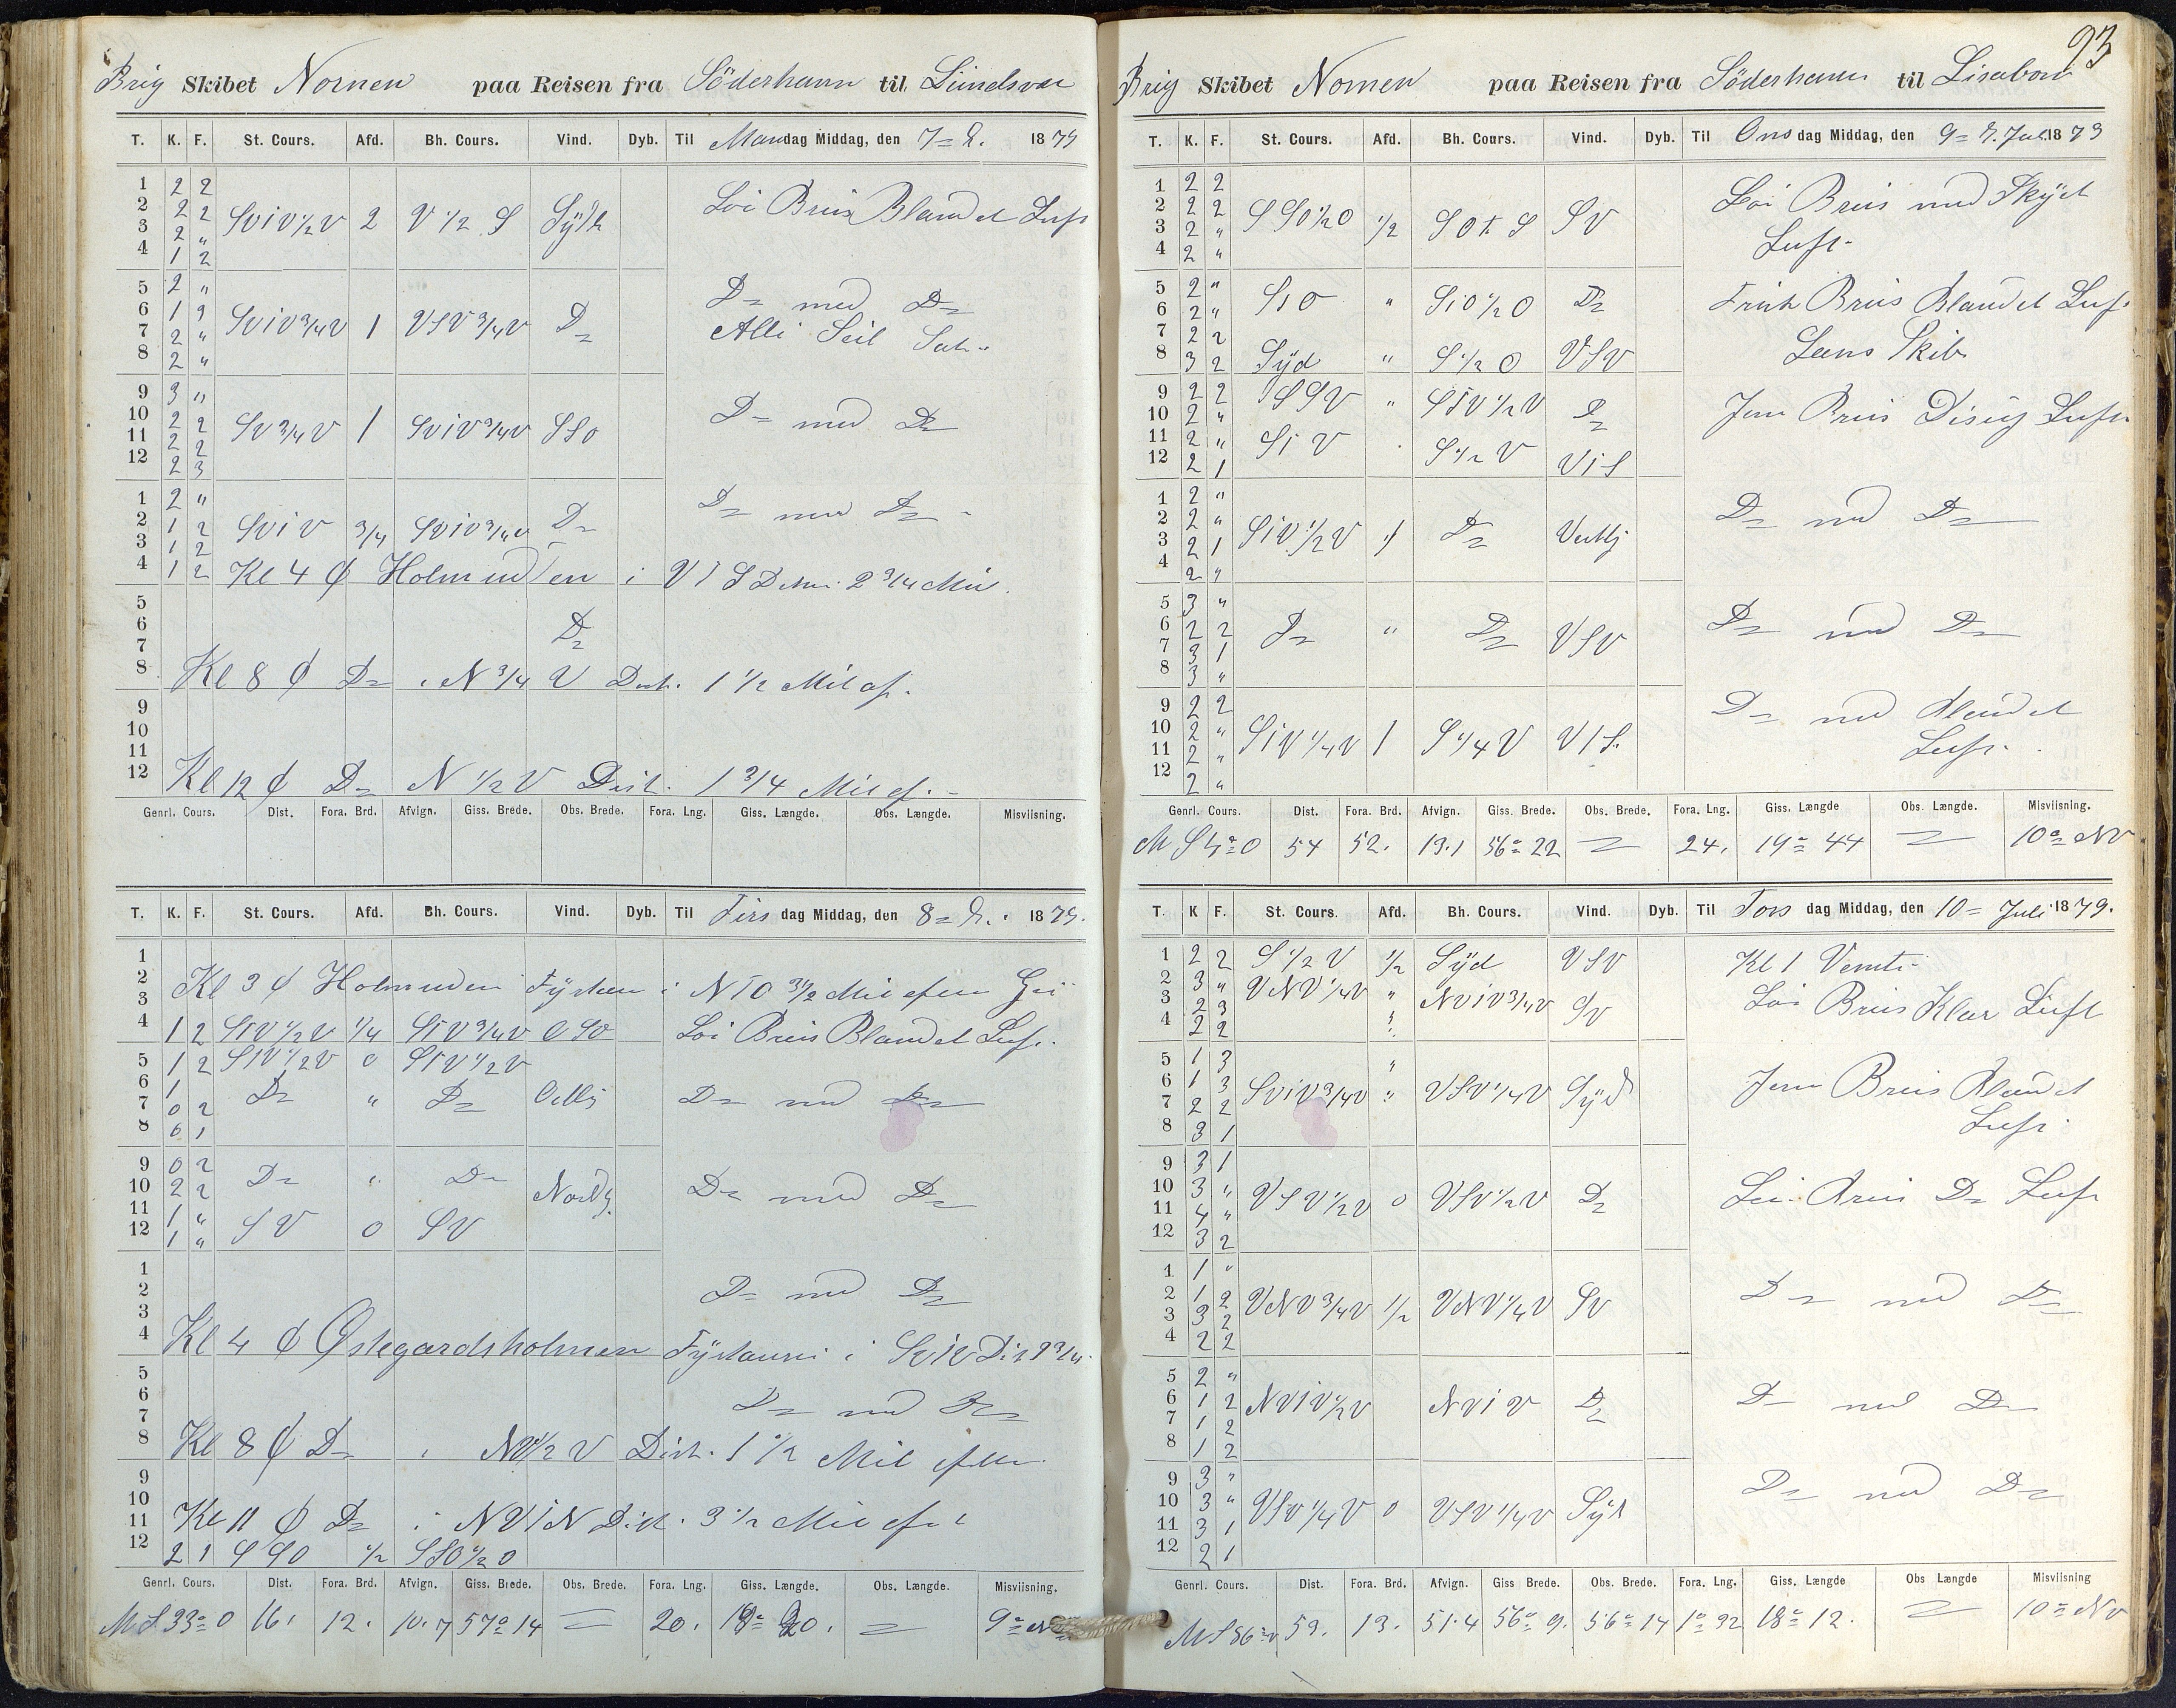 Brig Skibet Nornen paa Reisen fra Söderhavn til
T. K. F. St. Cours. Afd. Bh. Cours. Vind. Dyb. Til Mandag Middag, den 7 1879
1 2 2
2 2 2 SViV½V 2 V½S Syd Löi Bris Blandet Luft
3 2 "
4 1 2
5 2 "
6 1 2 SViV¾V 1 VSV¾V Do Do med Do
7 2 " Alle Seil
8 2 "
9 3 "
10 2 2 SV¾V 1 SViV¾V SSO Do med Do
11 2 2
12 2 3
1 2 "
2 1 2 SViV ¾ SViV¾V Do Do med Do
3 1 2
4 1 2 Kl 4 i 2¾ Mil.
5
6 Do
7
8 Kl 8 Do i N¾V Dist. 1½ Mil af.
9
10
11
12 Kl 12 Do N½V Dist. 1¾ Mil af.
Genrl. Cours. Dist. Fora. Brd. Afvign. Giss. Brede. Obs. Brede. Fora. Lng. Giss. Længde. Obs. Længde. Misviisning.
T. K. F. St. Cours. Afd. Bh. Cours. Vind. Dyb. Til Tirsdag Middag, den 8 1879.
1
2 Kl 3 Holmuden i
3
4 1 2 SiV½V ¼ SiV¾V OSO Löi Bris Blandet Luft.
5 1 2 SiV½V 0 SiV½V
6 1 Do " Do Do med Do
7 0 2
8 0 1
9 0 2
10 2 2 Do " Do Nordlig Do med Do
11 1 "
12 1 " SV 0 SV
1
2 Do med Do
3
4 Kl 4 Östegardsholmen i
5
6 Do med Do
7
8 Kl 8 Do i Dist. 1½ Mil
9
10
11 Kl 11 Do i NViN Dist. 3½ Mil
12 2 1 SSO ½ SSO½O
Genrl. Cours. Dist. Fora. Brd. Afvign. Giss. Brede. Obs. Brede. Fora. Lng. Giss. Længde. Obs. Længde. Misviisning.
M S 33° O 16. 12. 10.7 57° 14 20. 9°
93
Brig Skibet Nornen paa Reisen fra Söderhavn til Lisabon
T. K. F. St. Cours. Afd. Bh. Cours. Vind. Dyb. Til Onsdag Middag, den 9 Juli 1879
1 2 2
2 2 2 SSO½O ½ SOtS SV Löi Bris med Skyet
3 2 " Luft.
4 2 "
5 2 "
6 2 " SiO " SiO½O Do Frisk Bris Blandet Luft
7 2 2
8 3 2 Syd " S½O VSV Læns Skib
9 2 2 SSV " SiV½V Do
10 2 " Jevn Bris Disig Luft
11 2 " SiV S½V ViS
12 2 1
1 2 "
2 2 " SiV½V Do Vestlig Do med Do
3 2 1
4 2 "
5 3 "
6 2 2 Do " Do VSV Do med Do
7 3 1
8 3 "
9 2 2
10 2 " SiV¼V 1 S¼V ViS Do med Blandet
11 2 " Luft.
12 2 "
Genrl. Cours. Dist. Fora. Brd. Afvign. Giss. Brede. Obs. Brede. Fora. Lng. Giss. Længde Obs. Længde. Misviisning.
M S O 54 52. 13.1 56° 22 24. 19° 44 10° NV
T. K F. St. Cours. Afd. Bh. Cours. Vind. Dyb. Til Torsdag Middag, den 10 Juli 1879.
1 2 2 S½V ½ Syd VSV Kl 1 Vendte
2 3 " VNV¼V " NViV¾V SV
3 2 3 Löi Bris Klar Luft
4 2 2
5 1 3
6 1 3 SViV¾V " VSV¼V Syd Jevn Bris Blandet
7 2 2 Luft.
8 3 1
9 3 1
10 3 " VSV½V 0 VSV½V Do Bris Do Luft
11 4 "
12 3 2
1 1 "
2 1 2 VNV¾V ½ VNV¼V SV Do med Do
3 3 2
4 2 2
5 2 "
6 1 2 NViV½V NViV Do Do med Do
7 1 2
8 1 2
9 3 "
10 3 " VSV¼V 0 VSV¼V Syd Do med Do
11 3 1
12 2 1
Genrl. Cours. Dist. Fora. Brd. Afvign. Giss Brede. Obs. Brede. Fora. Lng. Giss. Længde Obs Længde Misviisning
M S 86° V 53. 13. 51.4 56° 9. 56° 14 1° 32 18° 12. 10° NV